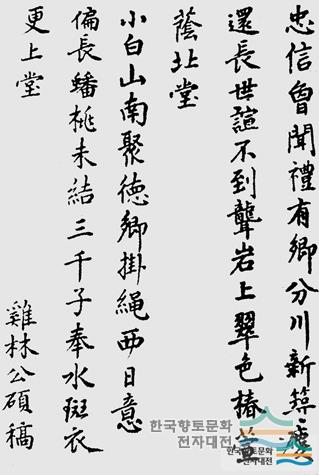 忠信曾聞禮有鄉分川新築慶
還長世諠不到聾岩上翠色椿萱
蔭北堂
小白山南聚德鄉掛繩西日意
偏長蟠桃未結三千子奉水斑衣
更上堂
雞林公碩稿
한국향토문화
전자대전
한국향토문화
전자대전